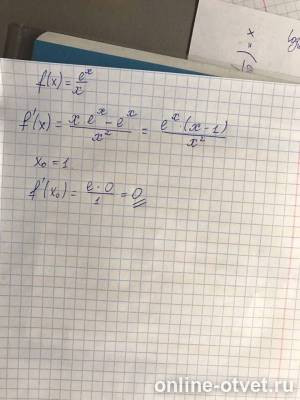 f(x) = e^x/x
f'(x) = (x·e^x − e^x)/x² = (e^x·(x−1))/x²
x₀ = 1
f'(x₀) = (e·0)/1 = 0
online-otvet.ru